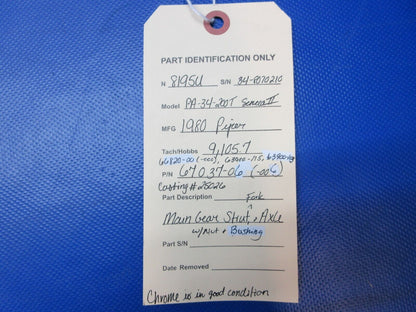 PART IDENTIFICATION ONLY
N 8195U S/N 34-8070210
Model PA-34-200T Seneca II
MFG 1980 Piper
Tach/Hobbs 9,105.7
66820-00 (-000), 63040-115, 63900-
P/N 67037-06 (-006)
Casting # 25026
Part Description Fork
Main Gear Strut, + Axle
w/Nut + Bushing
Part S/N
Date Removed
Chrome is in good condition